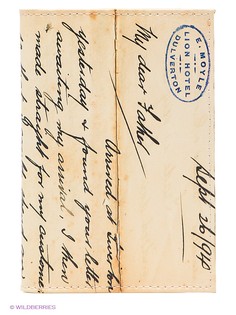 E. MOYLE
LION HOTEL
DULVERTON
Sept 26/1940
My dear Father
Arrived at
yesterday & found your letter
awaiting my arrival, I then
made straight for my customer
© WILDBERRIES